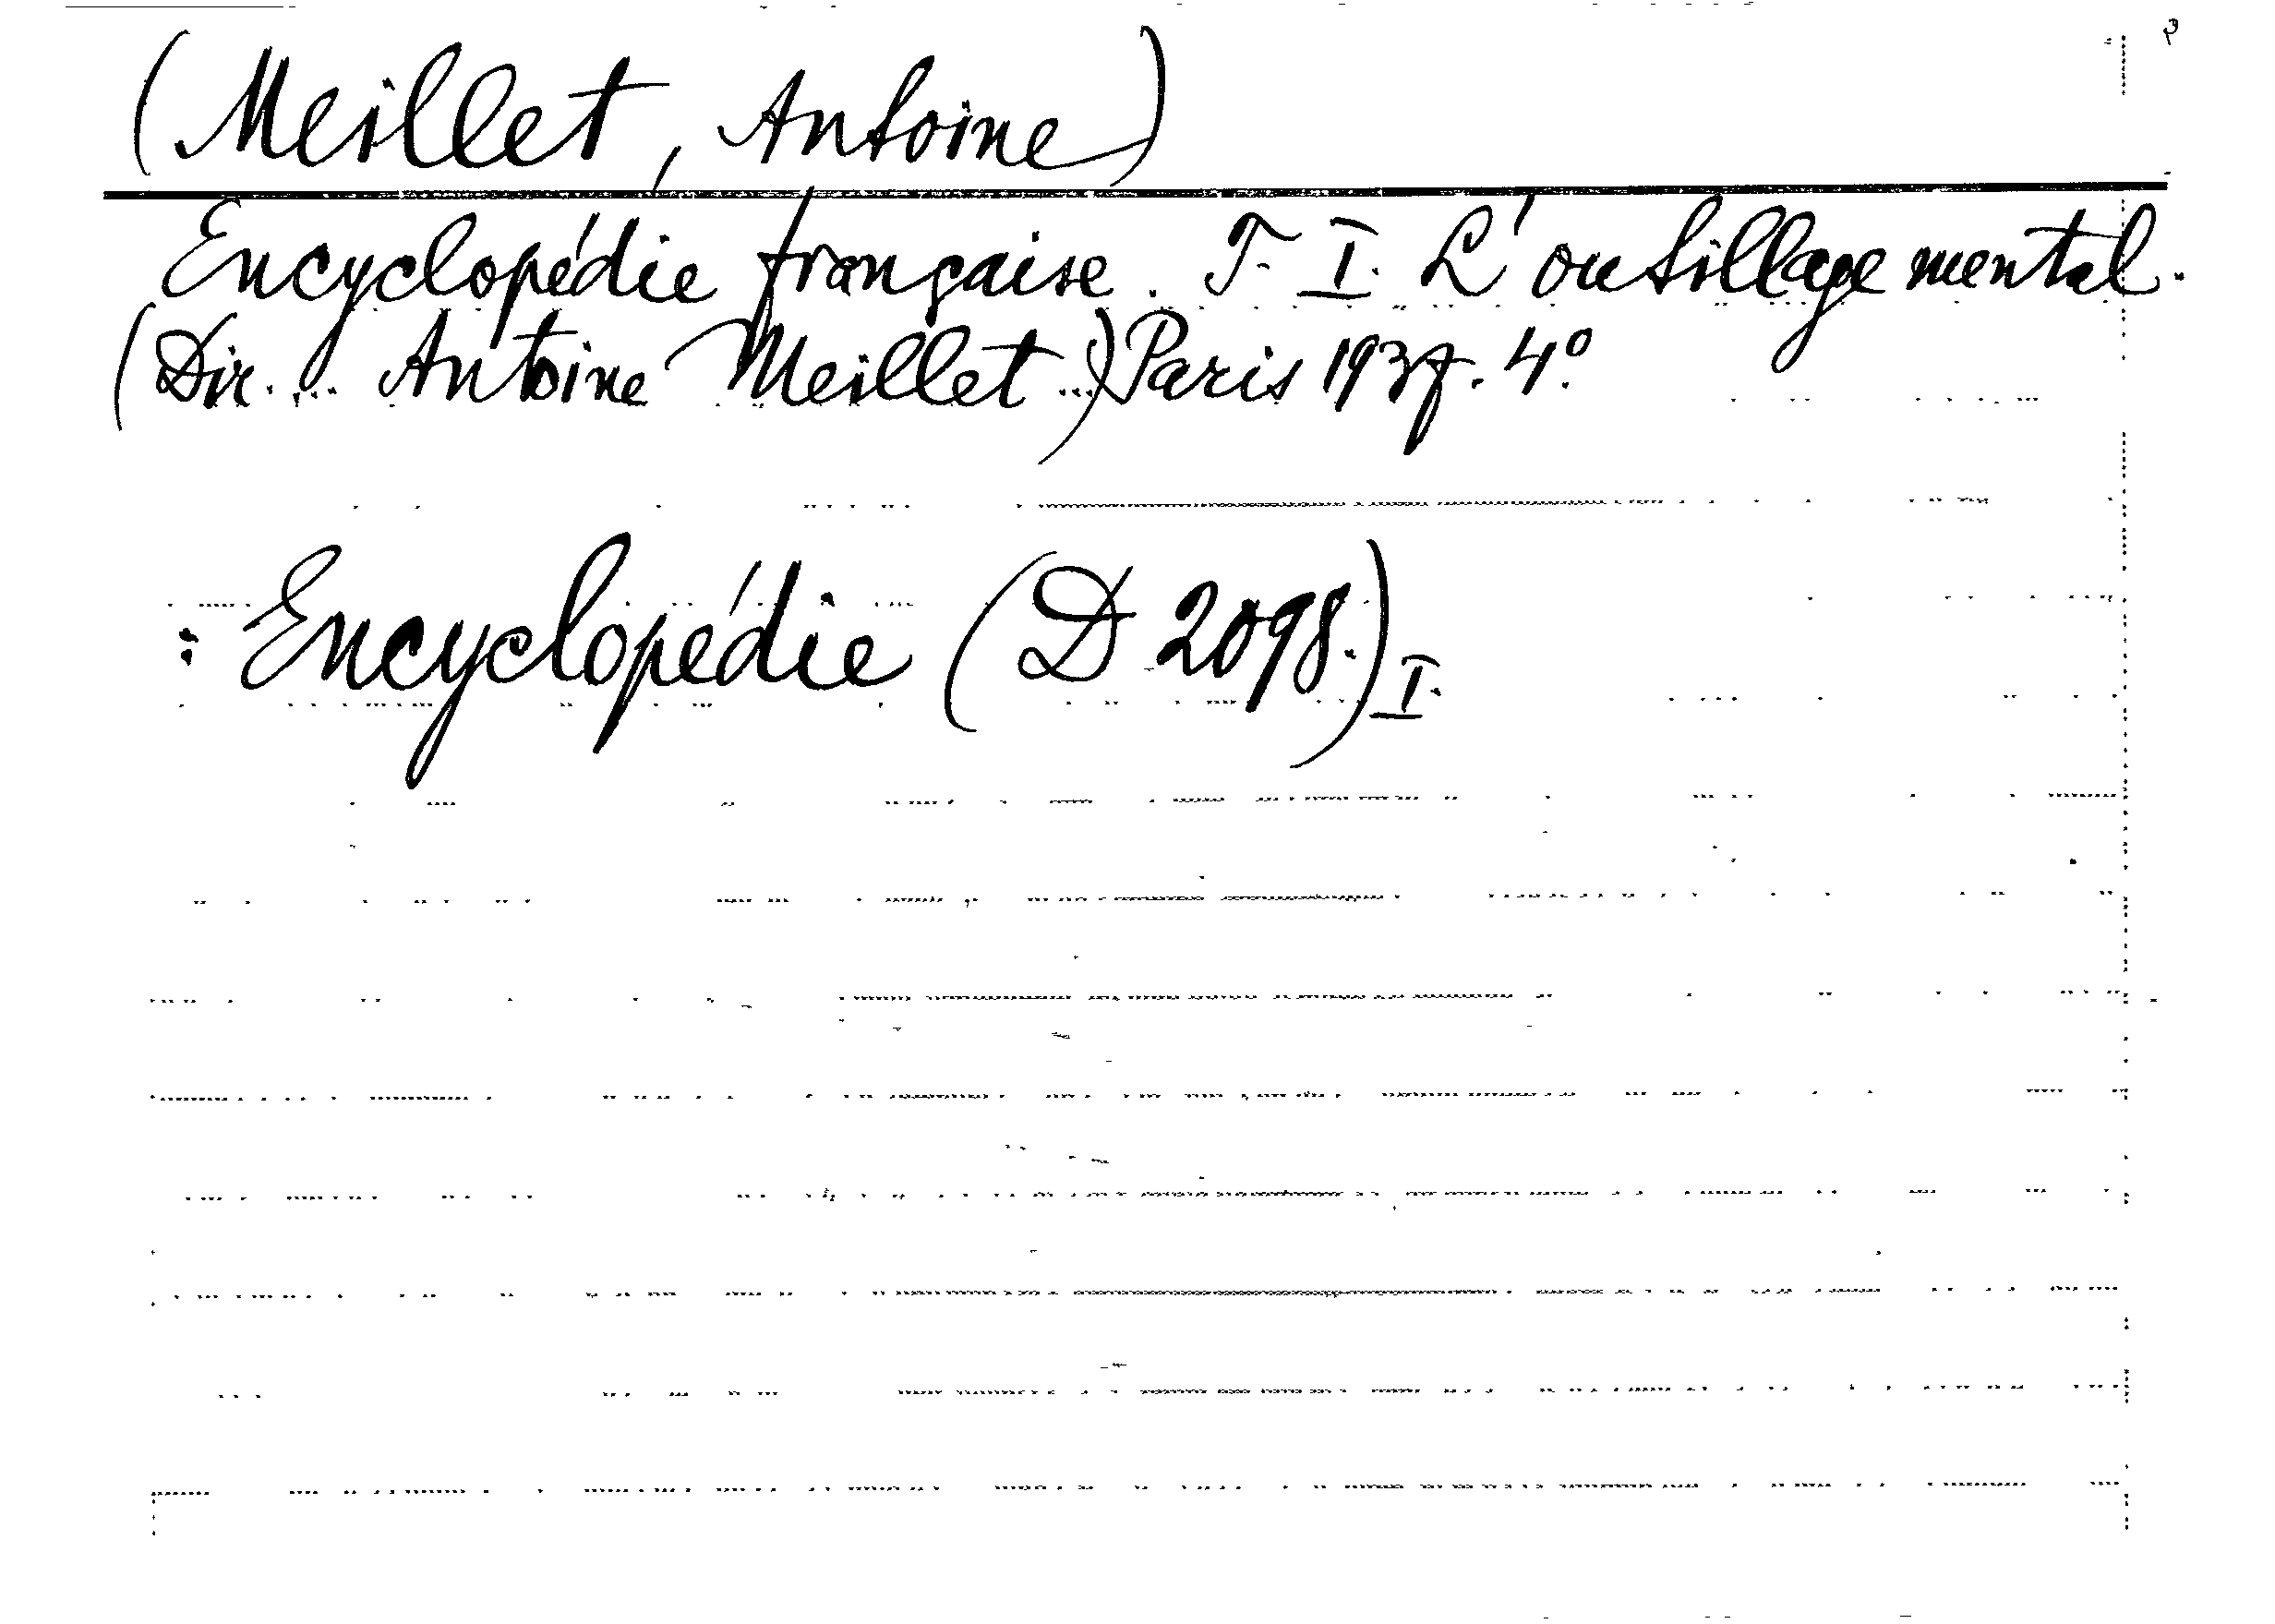 (Meillet, Antoine)
Encyclopédie française. T. I. L'outillage mental.
(Dir. ... Antoine Meillet ...) Paris 1937. 4º
: Encyclopédie (D 2098.) I.